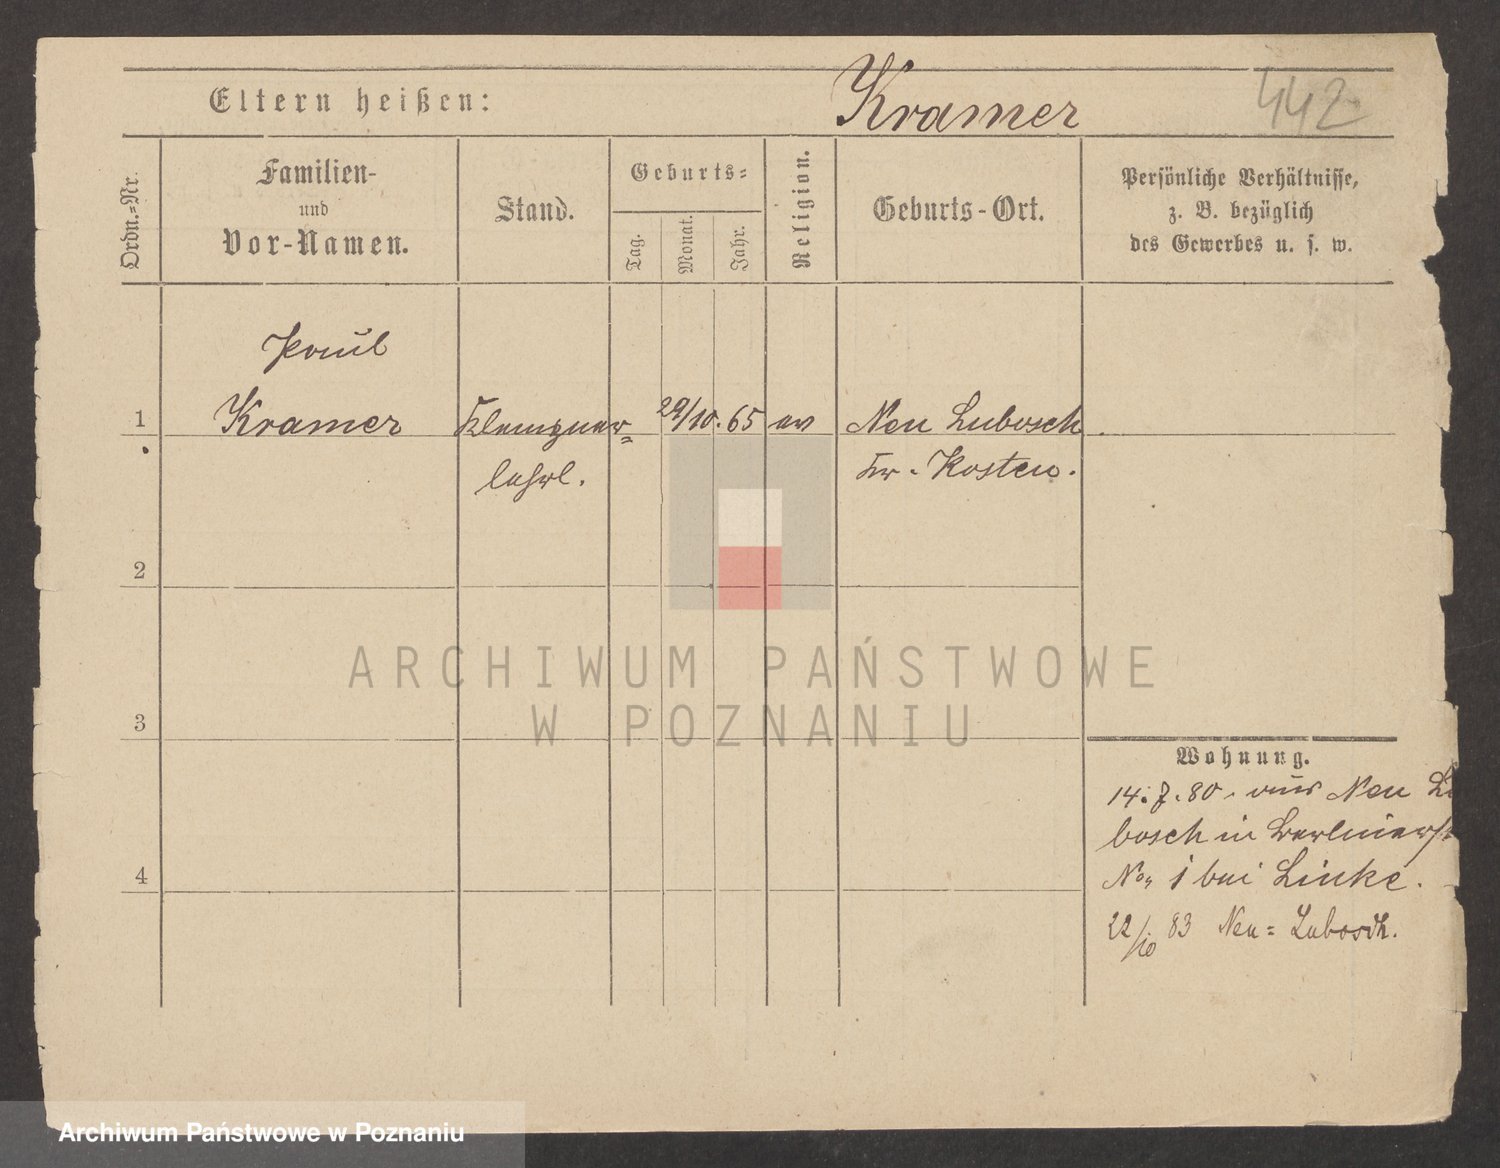 Eltern heißen:
Kramer
442
Ordn.-Nr.
Familien-
und
Vor-Namen.
Stand.
Geburts-
Tag.
Monat.
Jahr.
Religion.
Geburts-Ort.
Persönliche Verhältnisse,
z. B. bezüglich
des Gewerbes u. s. w.
Paul
1 Kramer Klempner- 29/10. 65 ev Neu Lubosch
lehrl. Kr. Kosten.
2
ARCHIWUM PAŃSTWOWE
W POZNANIU
3
Wohnung.
14. 7. 80. aus Neu Lu
bosch in Berlinerst
No, 1 bei Linke.
4
22/10 83 Neu= Lubosch.
Archiwum Państwowe w Poznaniu